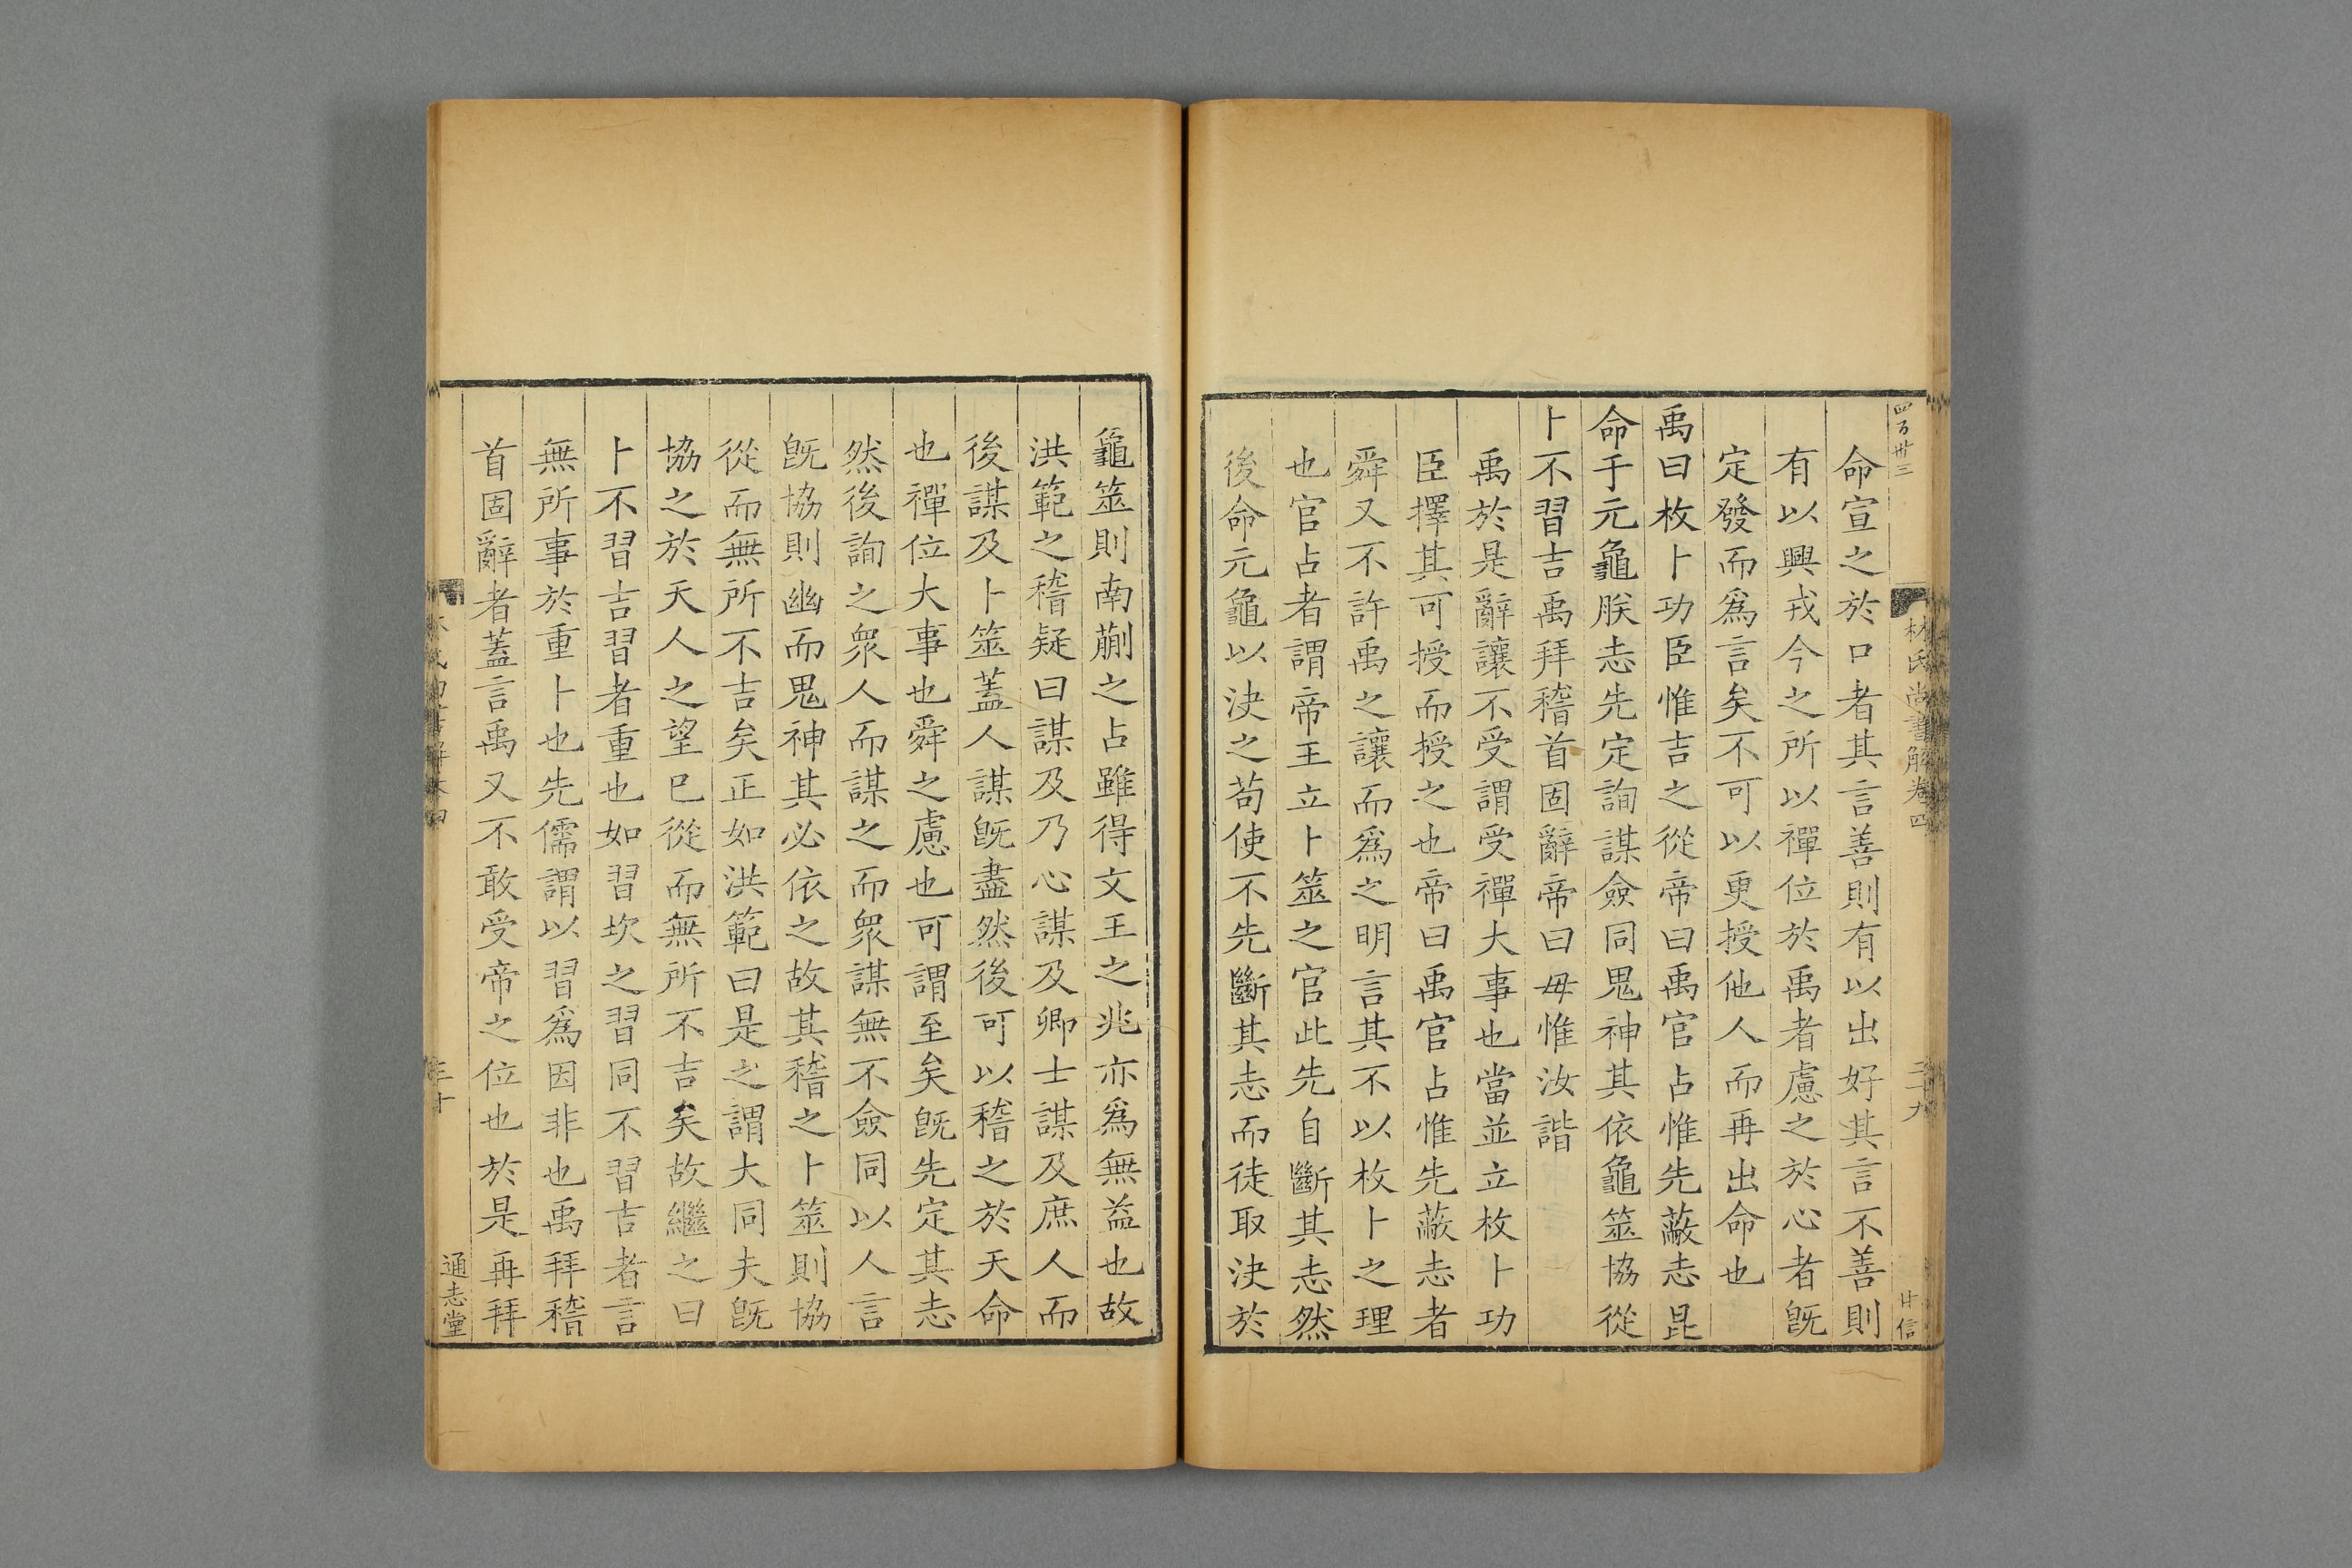 四百卅三
林氏尚書解卷四
二十九
廿信
命宣之於口者其言善則有以出好其言不善則
有以興戎今之所以禪位於禹者慮之於心者旣
定發而爲言矣不可以更授他人而再出命也
禹曰枚卜功臣惟吉之從帝曰禹官占惟先蔽志昆
命于元龜朕志先定詢謀僉同鬼神其依龜筮協從
卜不習吉禹拜稽首固辭帝曰毋惟汝諧
禹於是辭讓不受謂受禪大事也當並立枚卜功
臣擇其可授而授之也帝曰禹官占惟先蔽志者
舜又不許禹之讓而爲之明言其不以枚卜之理
也官占者謂帝王立卜筮之官此先自斷其志然
後命元龜以決之苟使不先斷其志而徒取決於
龜筮則南蒯之占雖得文王之兆亦爲無益也故
洪範之稽疑曰謀及乃心謀及卿士謀及庶人而
後謀及卜筮蓋人謀旣盡然後可以稽之於天命
也禪位大事也舜之慮也可謂至矣旣先定其志
然後詢之衆人而謀之而衆謀無不僉同以人言
旣協則幽而鬼神其必依之故其稽之卜筮則協
從而無所不吉矣正如洪範曰是之謂大同夫旣
協之於天人之望已從而無所不吉矣故繼之曰
卜不習吉習者重也如習坎之習同不習吉者言
無所事於重卜也先儒謂以習爲因非也禹拜稽
首固辭者蓋言禹又不敢受帝之位也於是再拜
三十
通志堂